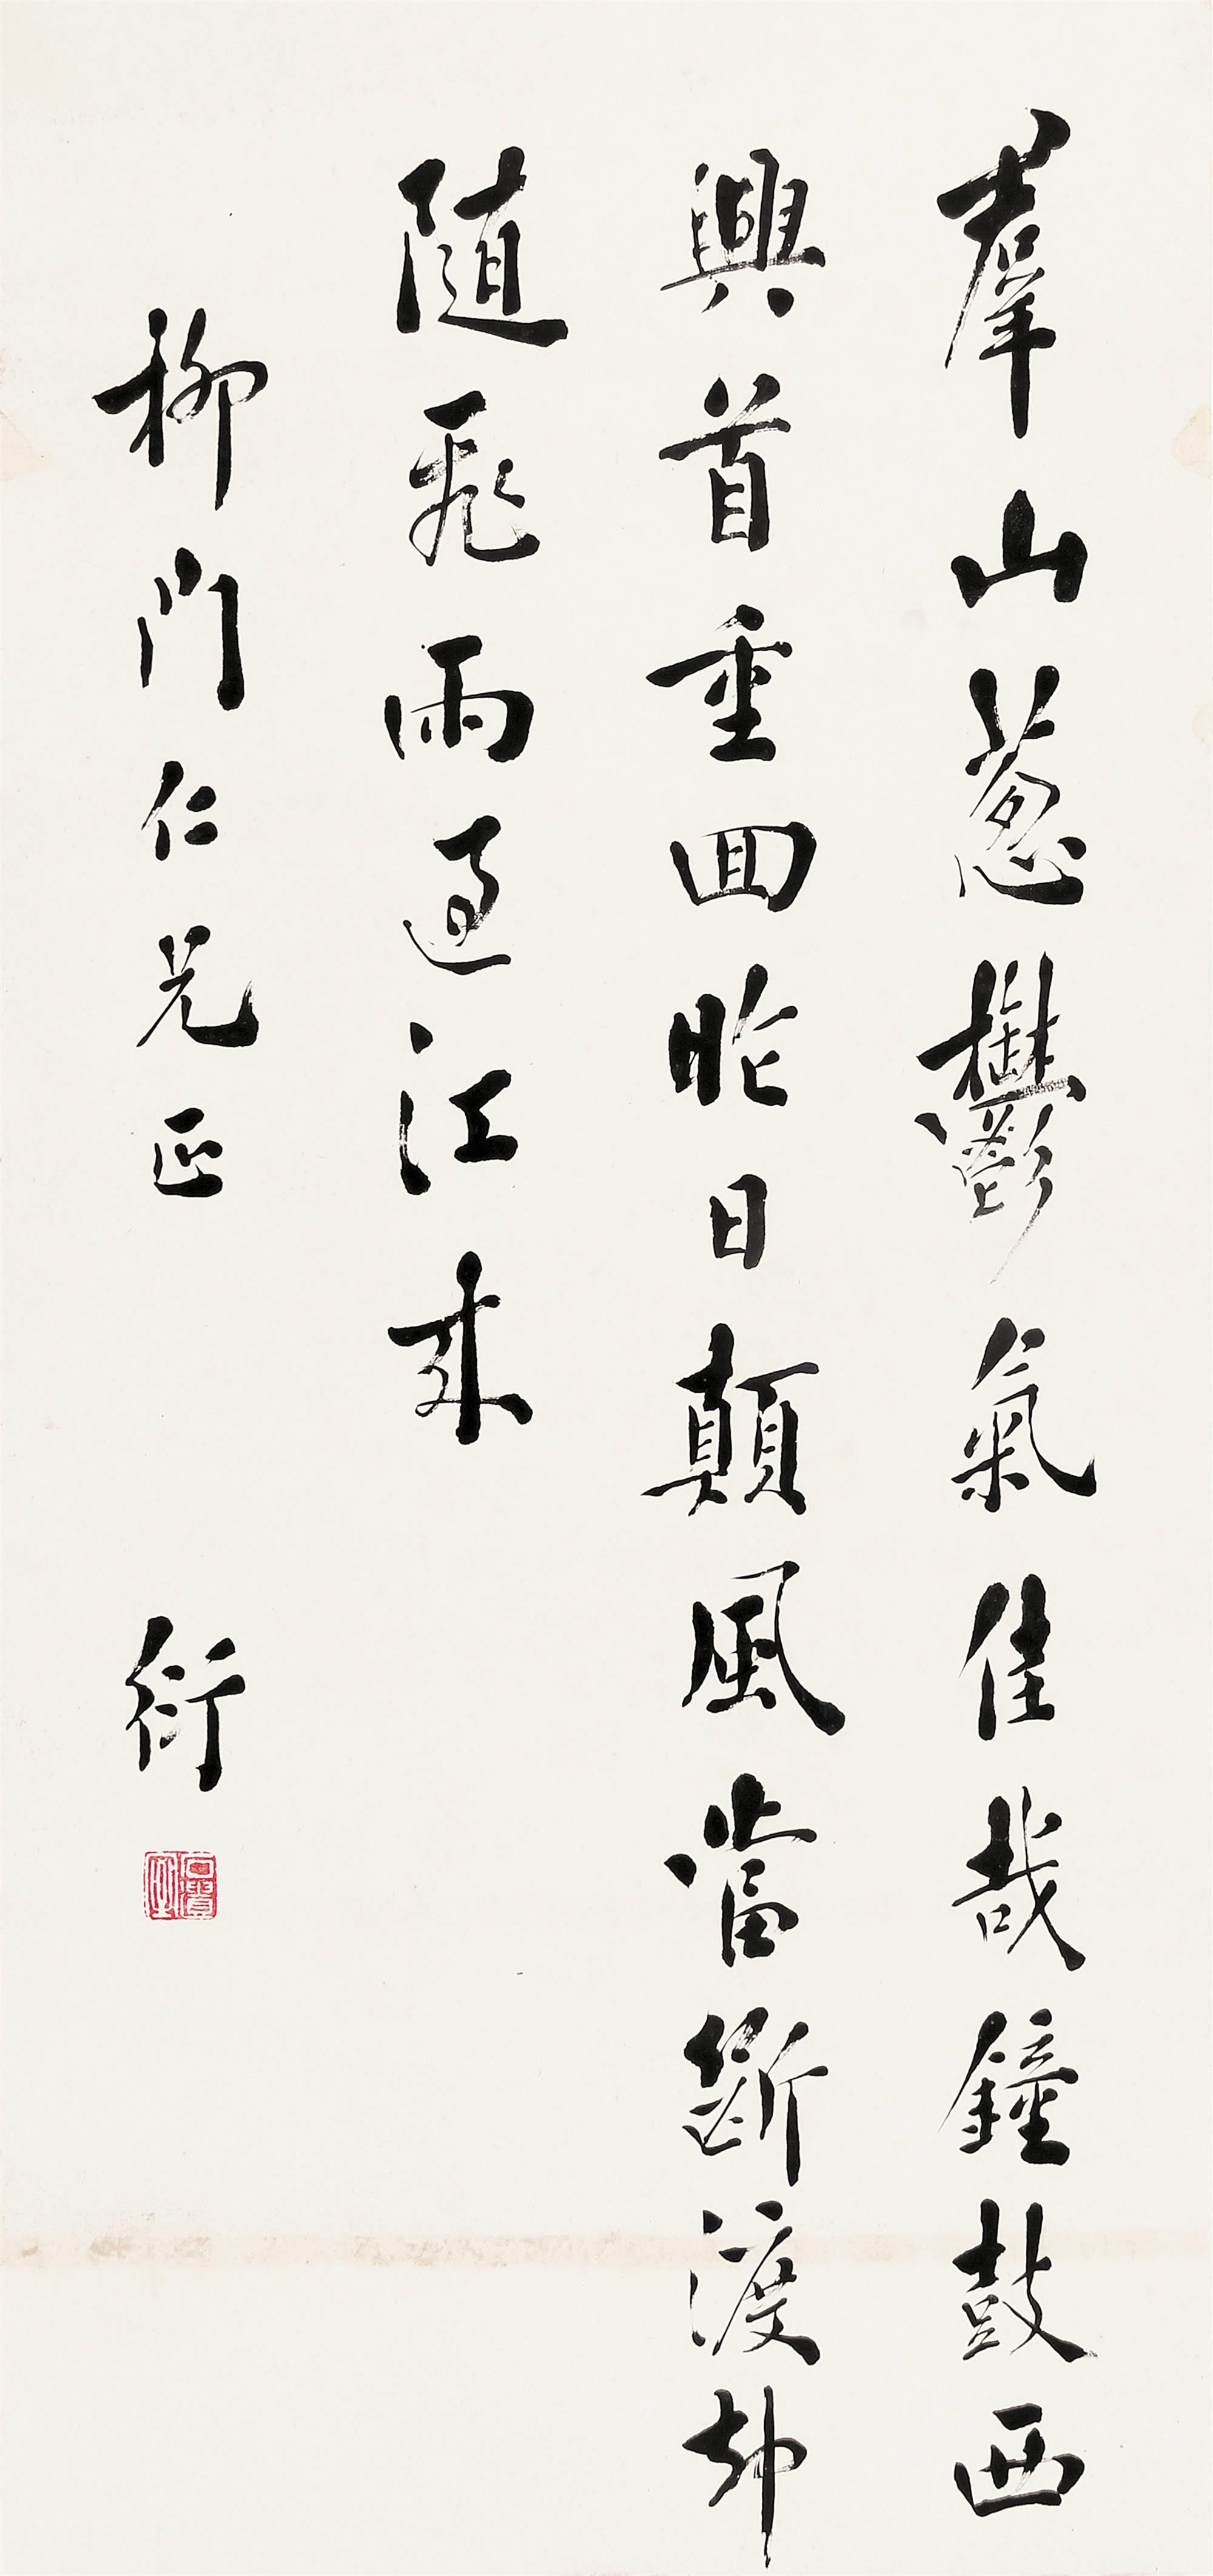 羣山葱鬱氣佳哉鐘鼓西
興首重回昨日顛風當斷渡却
隨飛雨過江來
柳門仁兄正
衍